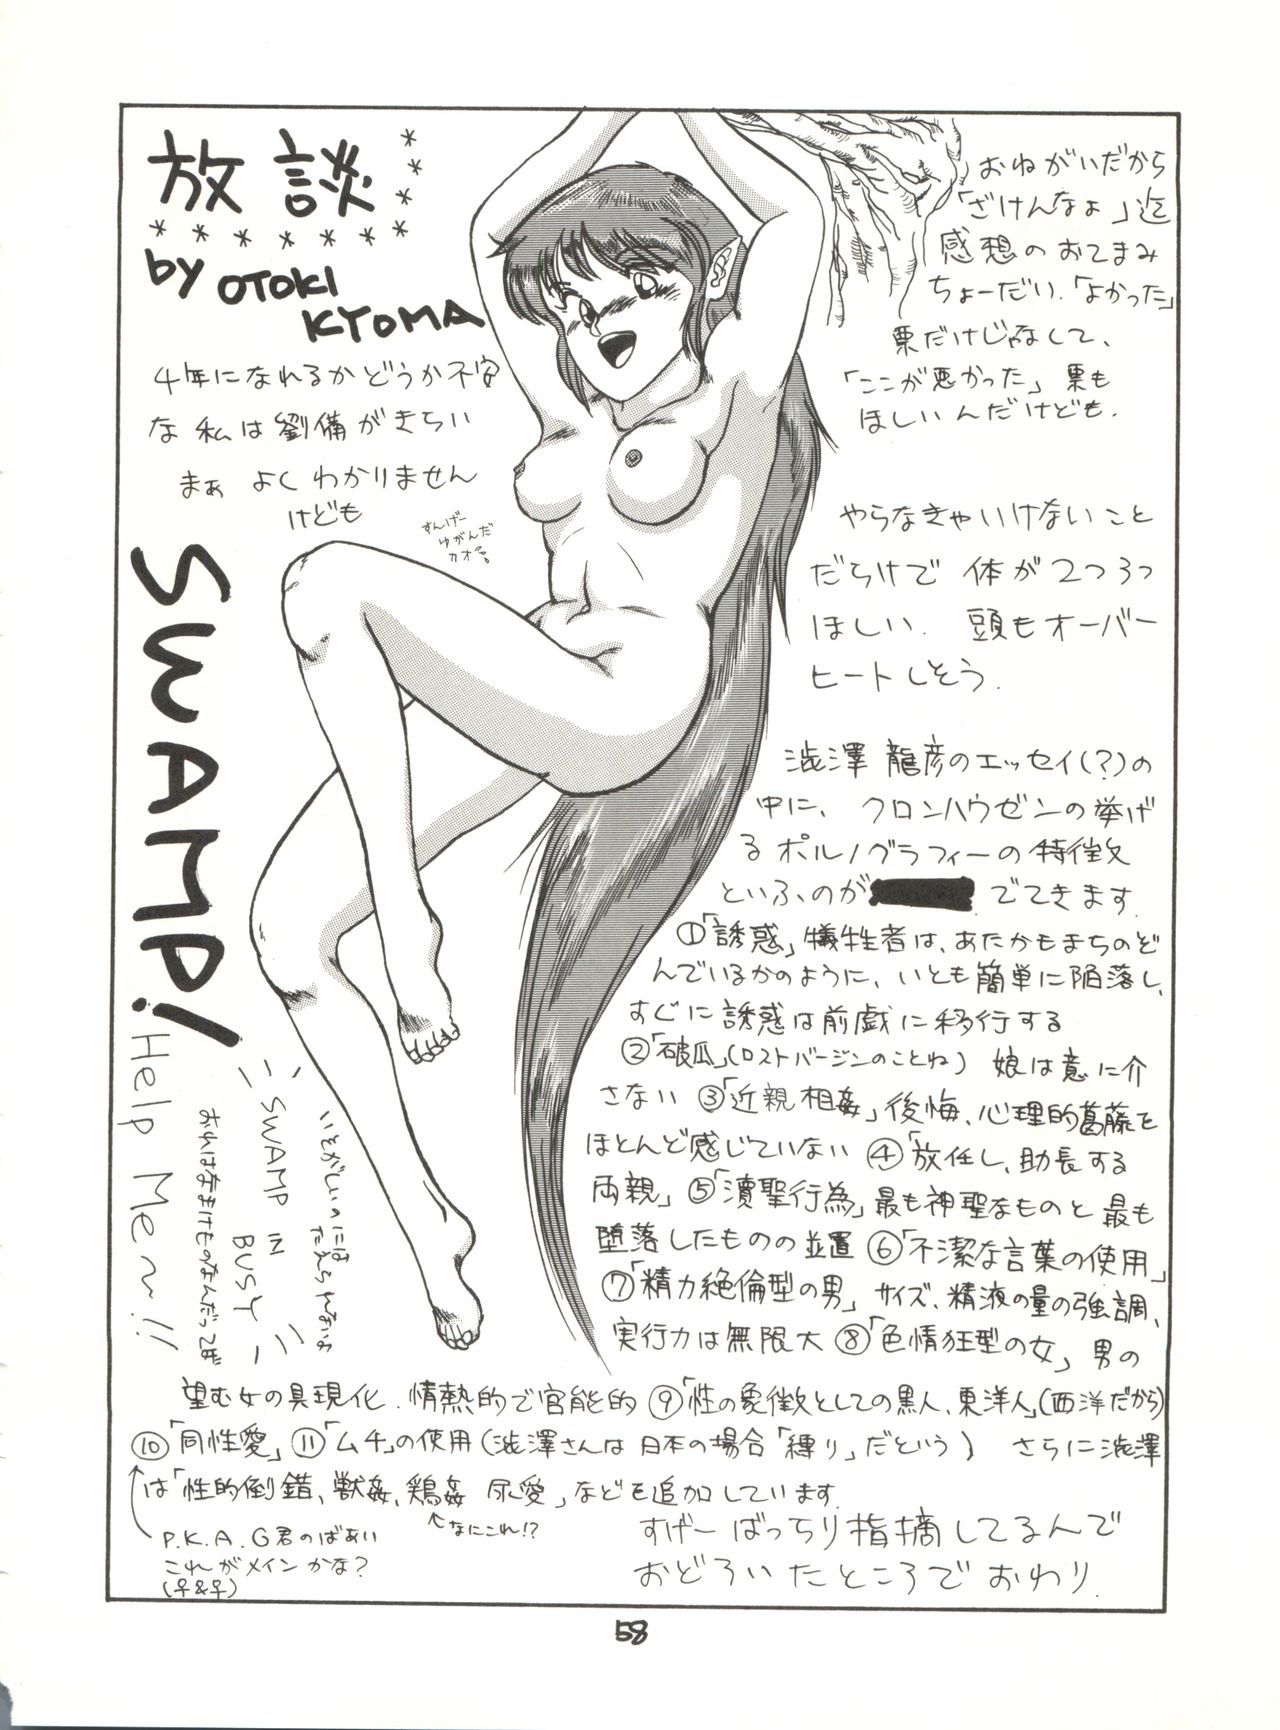 放談
by OTOKI
KYOMA
4年になれるかどうか不安
な私は劉備がきらい
まぁ よくわかりません
けども
すんげー
ゆがんだ
カオ
SWAMP!
Help Me~!!
おれはなまけものなんだってば
SWAMP IN BUSY
いとがしいのには
たえられないよ
おねがいだから
「ざけんなよ」迄
感想のおてまみ
ちょーだい.「よかった」
票だけじゃなして、
「ここが悪かった」票も
ほしいんだけども.
やらなきゃいけないこと
だらけで 体が2つ3つ
ほしい. 頭もオーバー
ヒートしそう.
澁澤 龍彦のエッセイ(?)の
中に、クロンハウゼンの挙げ
るポルノグラフィーの特徴
といふのが でてきます.
①「誘惑」犠牲者は、あたかもまちのど
んでいるかのように、いとも簡単に陥落し、
すぐに誘惑は前戯に移行する
②「破瓜」(ロストバージンのことね) 娘は意に介
さない ③「近親相姦」後悔、心理的葛藤を
ほとんど感じていない ④「放任し、助長する
両親」⑤「瀆聖行為」最も神聖なものと最も
堕落したものの並置 ⑥「不潔な言葉の使用」
⑦「精力絶倫型の男」サイズ、精液の量の強調、
実行力は無限大 ⑧「色情狂型の女」男の
望む女の具現化.情熱的で官能的 ⑨「性の象徴としての黒人、東洋人」(西洋だから)
⑩「同性愛」⑪「ムチ」の使用(澁澤さんは日本の場合「縛り」だという) さらに澁澤
は「性的倒錯、獣姦、鶏姦 尿愛」などを追加しています.
なにこれ!?
P.K.A.G君のばあい
これがメインかな?
(♀&♀)
すげーばっちり指摘してるんで
おどろいたところでおわり.
58